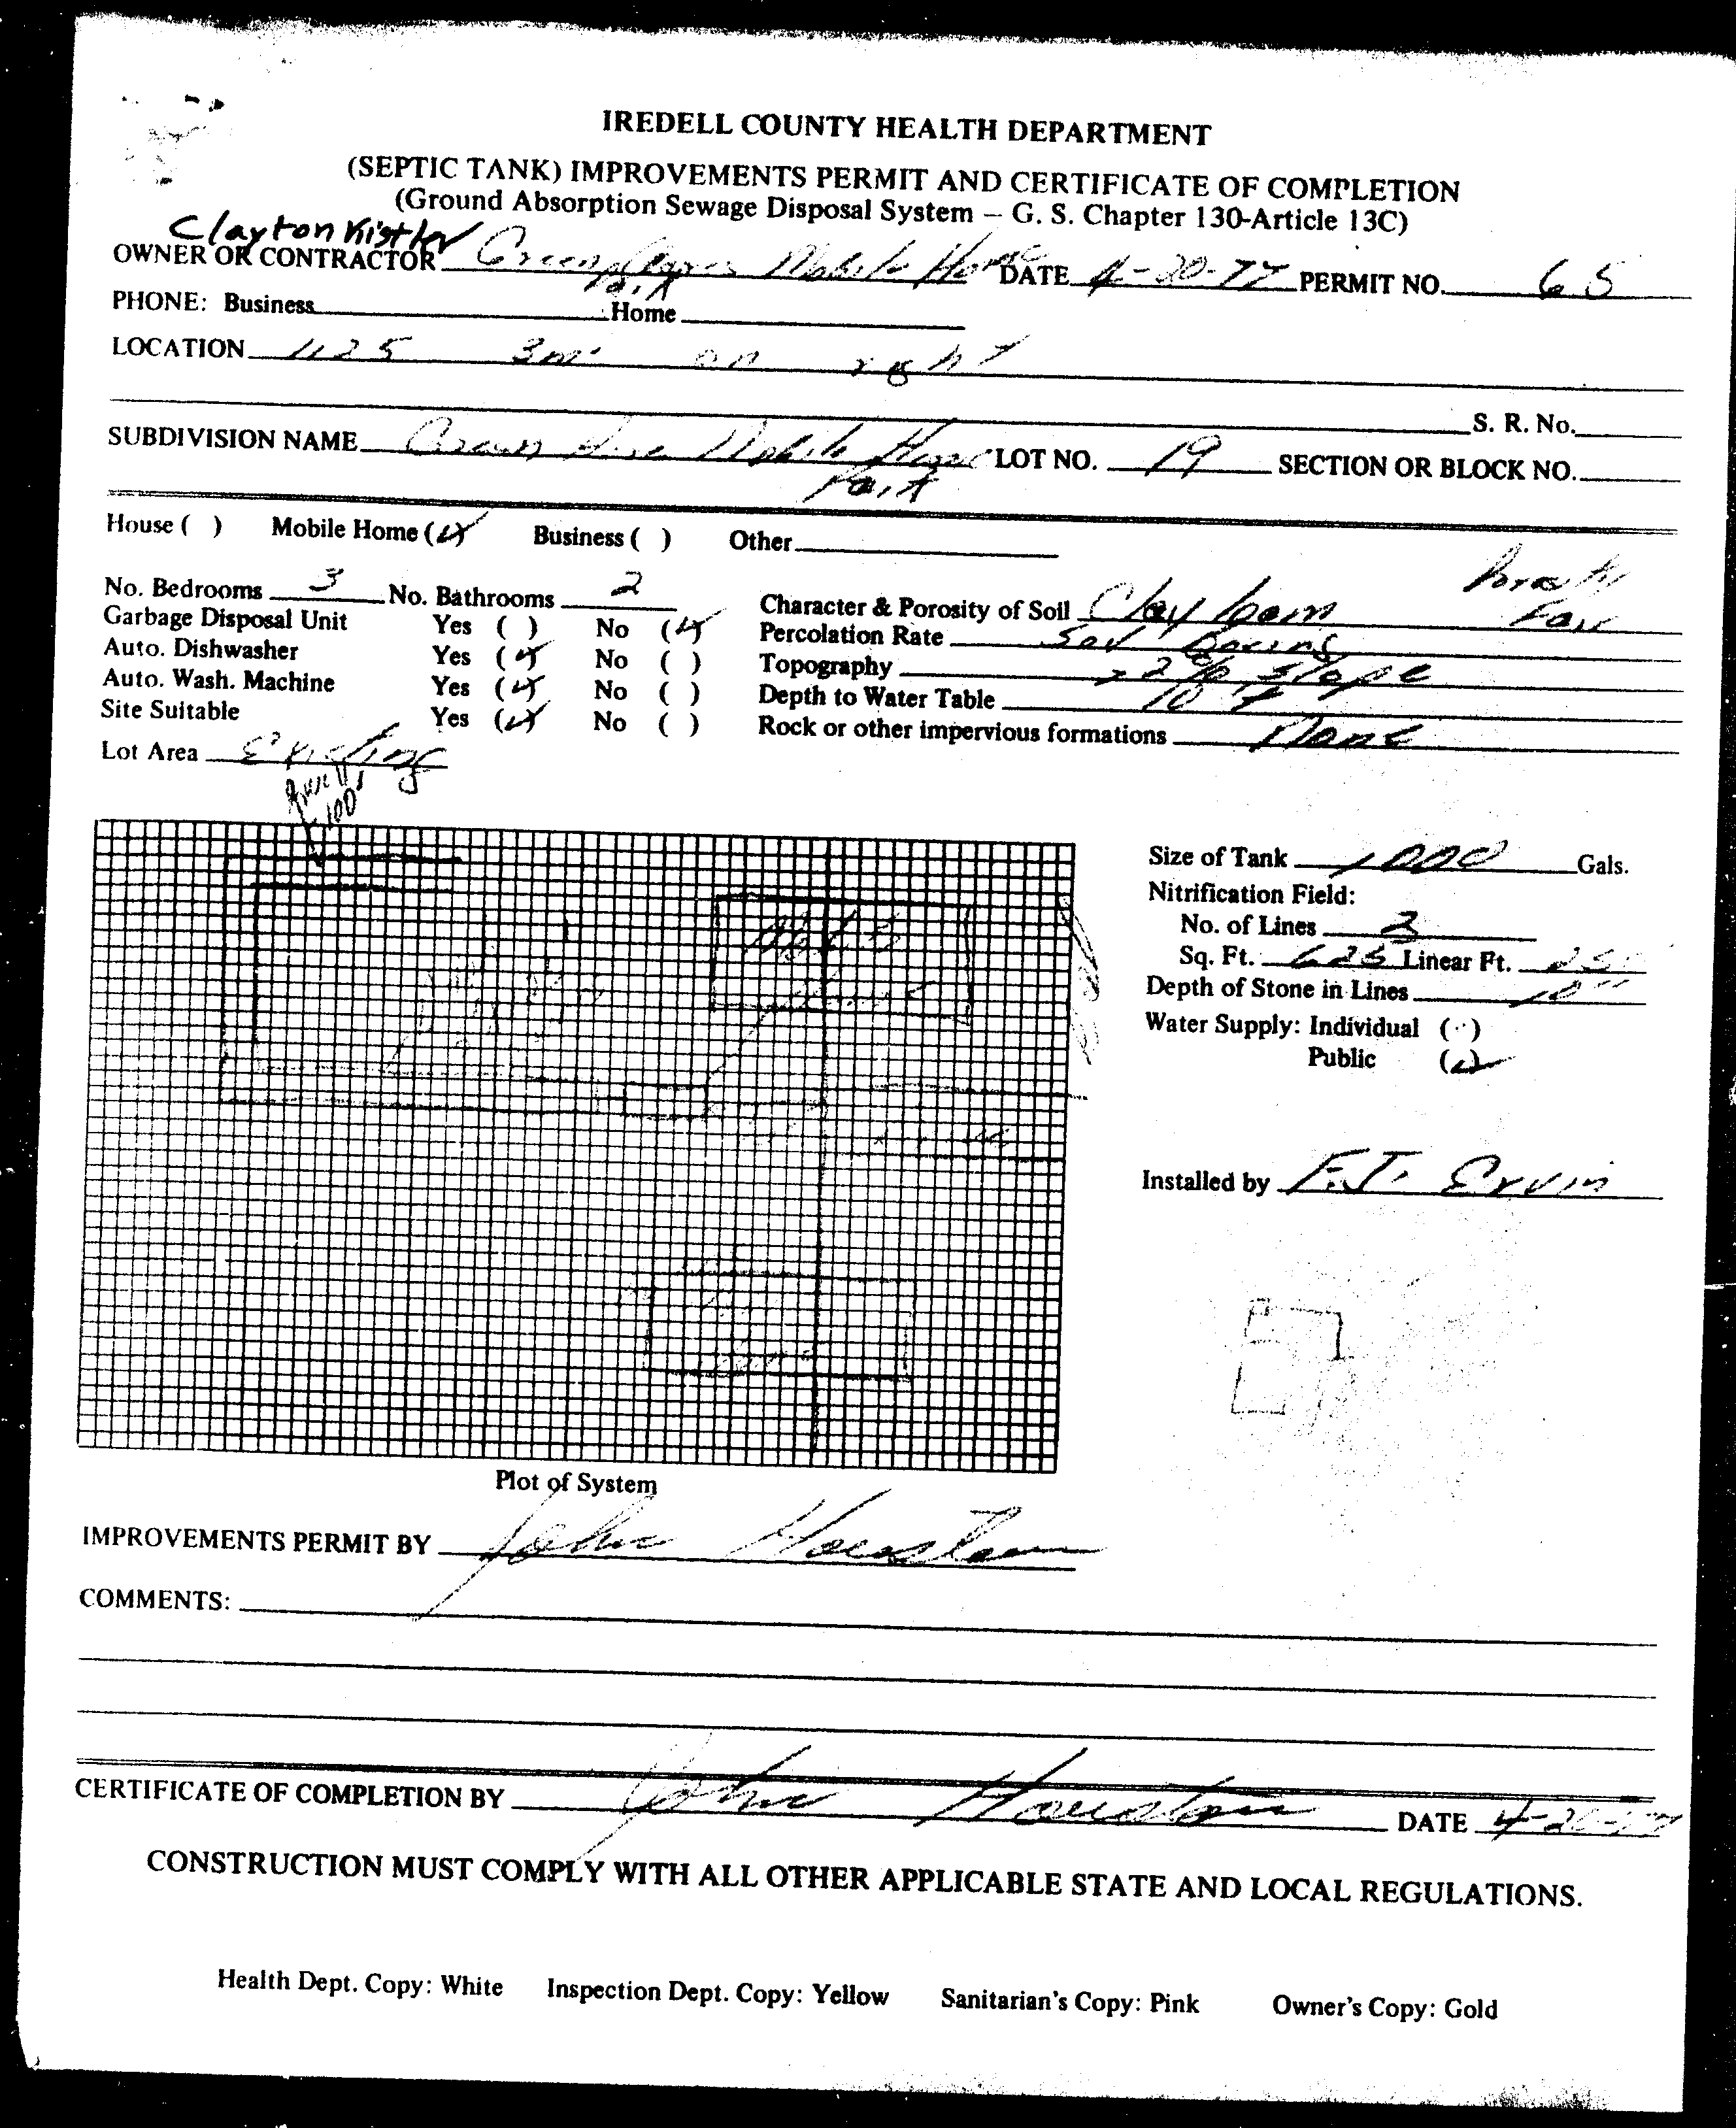 IREDELL COUNTY HEALTH DEPARTMENT
(SEPTIC TANK) IMPROVEMENTS PERMIT AND CERTIFICATE OF COMPLETION
(Ground Absorption Sewage Disposal System – G. S. Chapter 130-Article 13C)
Clayton Kistler
OWNER OR CONTRACTOR Mobile Home DATE 4-20-77 PERMIT NO. 65
PHONE: Business Home
LOCATION 1125 3mi on right
S. R. No.
SUBDIVISION NAME Mobile Home LOT NO. 19 SECTION OR BLOCK NO.
Park
House ( ) Mobile Home (✓) Business ( ) Other
No. Bedrooms 3 No. Bathrooms 2 Character & Porosity of Soil Clay loam Fair
Garbage Disposal Unit Yes ( ) No (✓) Percolation Rate Borings
Auto. Dishwasher Yes (✓) No ( ) Topography 2% slope
Auto. Wash. Machine Yes (✓) No ( ) Depth to Water Table 10'
Site Suitable Yes (✓) No ( ) Rock or other impervious formations None
Lot Area Existing
100'
Size of Tank 1000 Gals.
Nitrification Field:
No. of Lines
Sq. Ft. 625 Linear Ft.
Depth of Stone in Lines 10"
Water Supply: Individual ( )
Public (✓)
Installed by F.J. Ervin
Plot of System
IMPROVEMENTS PERMIT BY John Houston
COMMENTS:
CERTIFICATE OF COMPLETION BY John Houston DATE
CONSTRUCTION MUST COMPLY WITH ALL OTHER APPLICABLE STATE AND LOCAL REGULATIONS.
Health Dept. Copy: White Inspection Dept. Copy: Yellow Sanitarian's Copy: Pink Owner's Copy: Gold